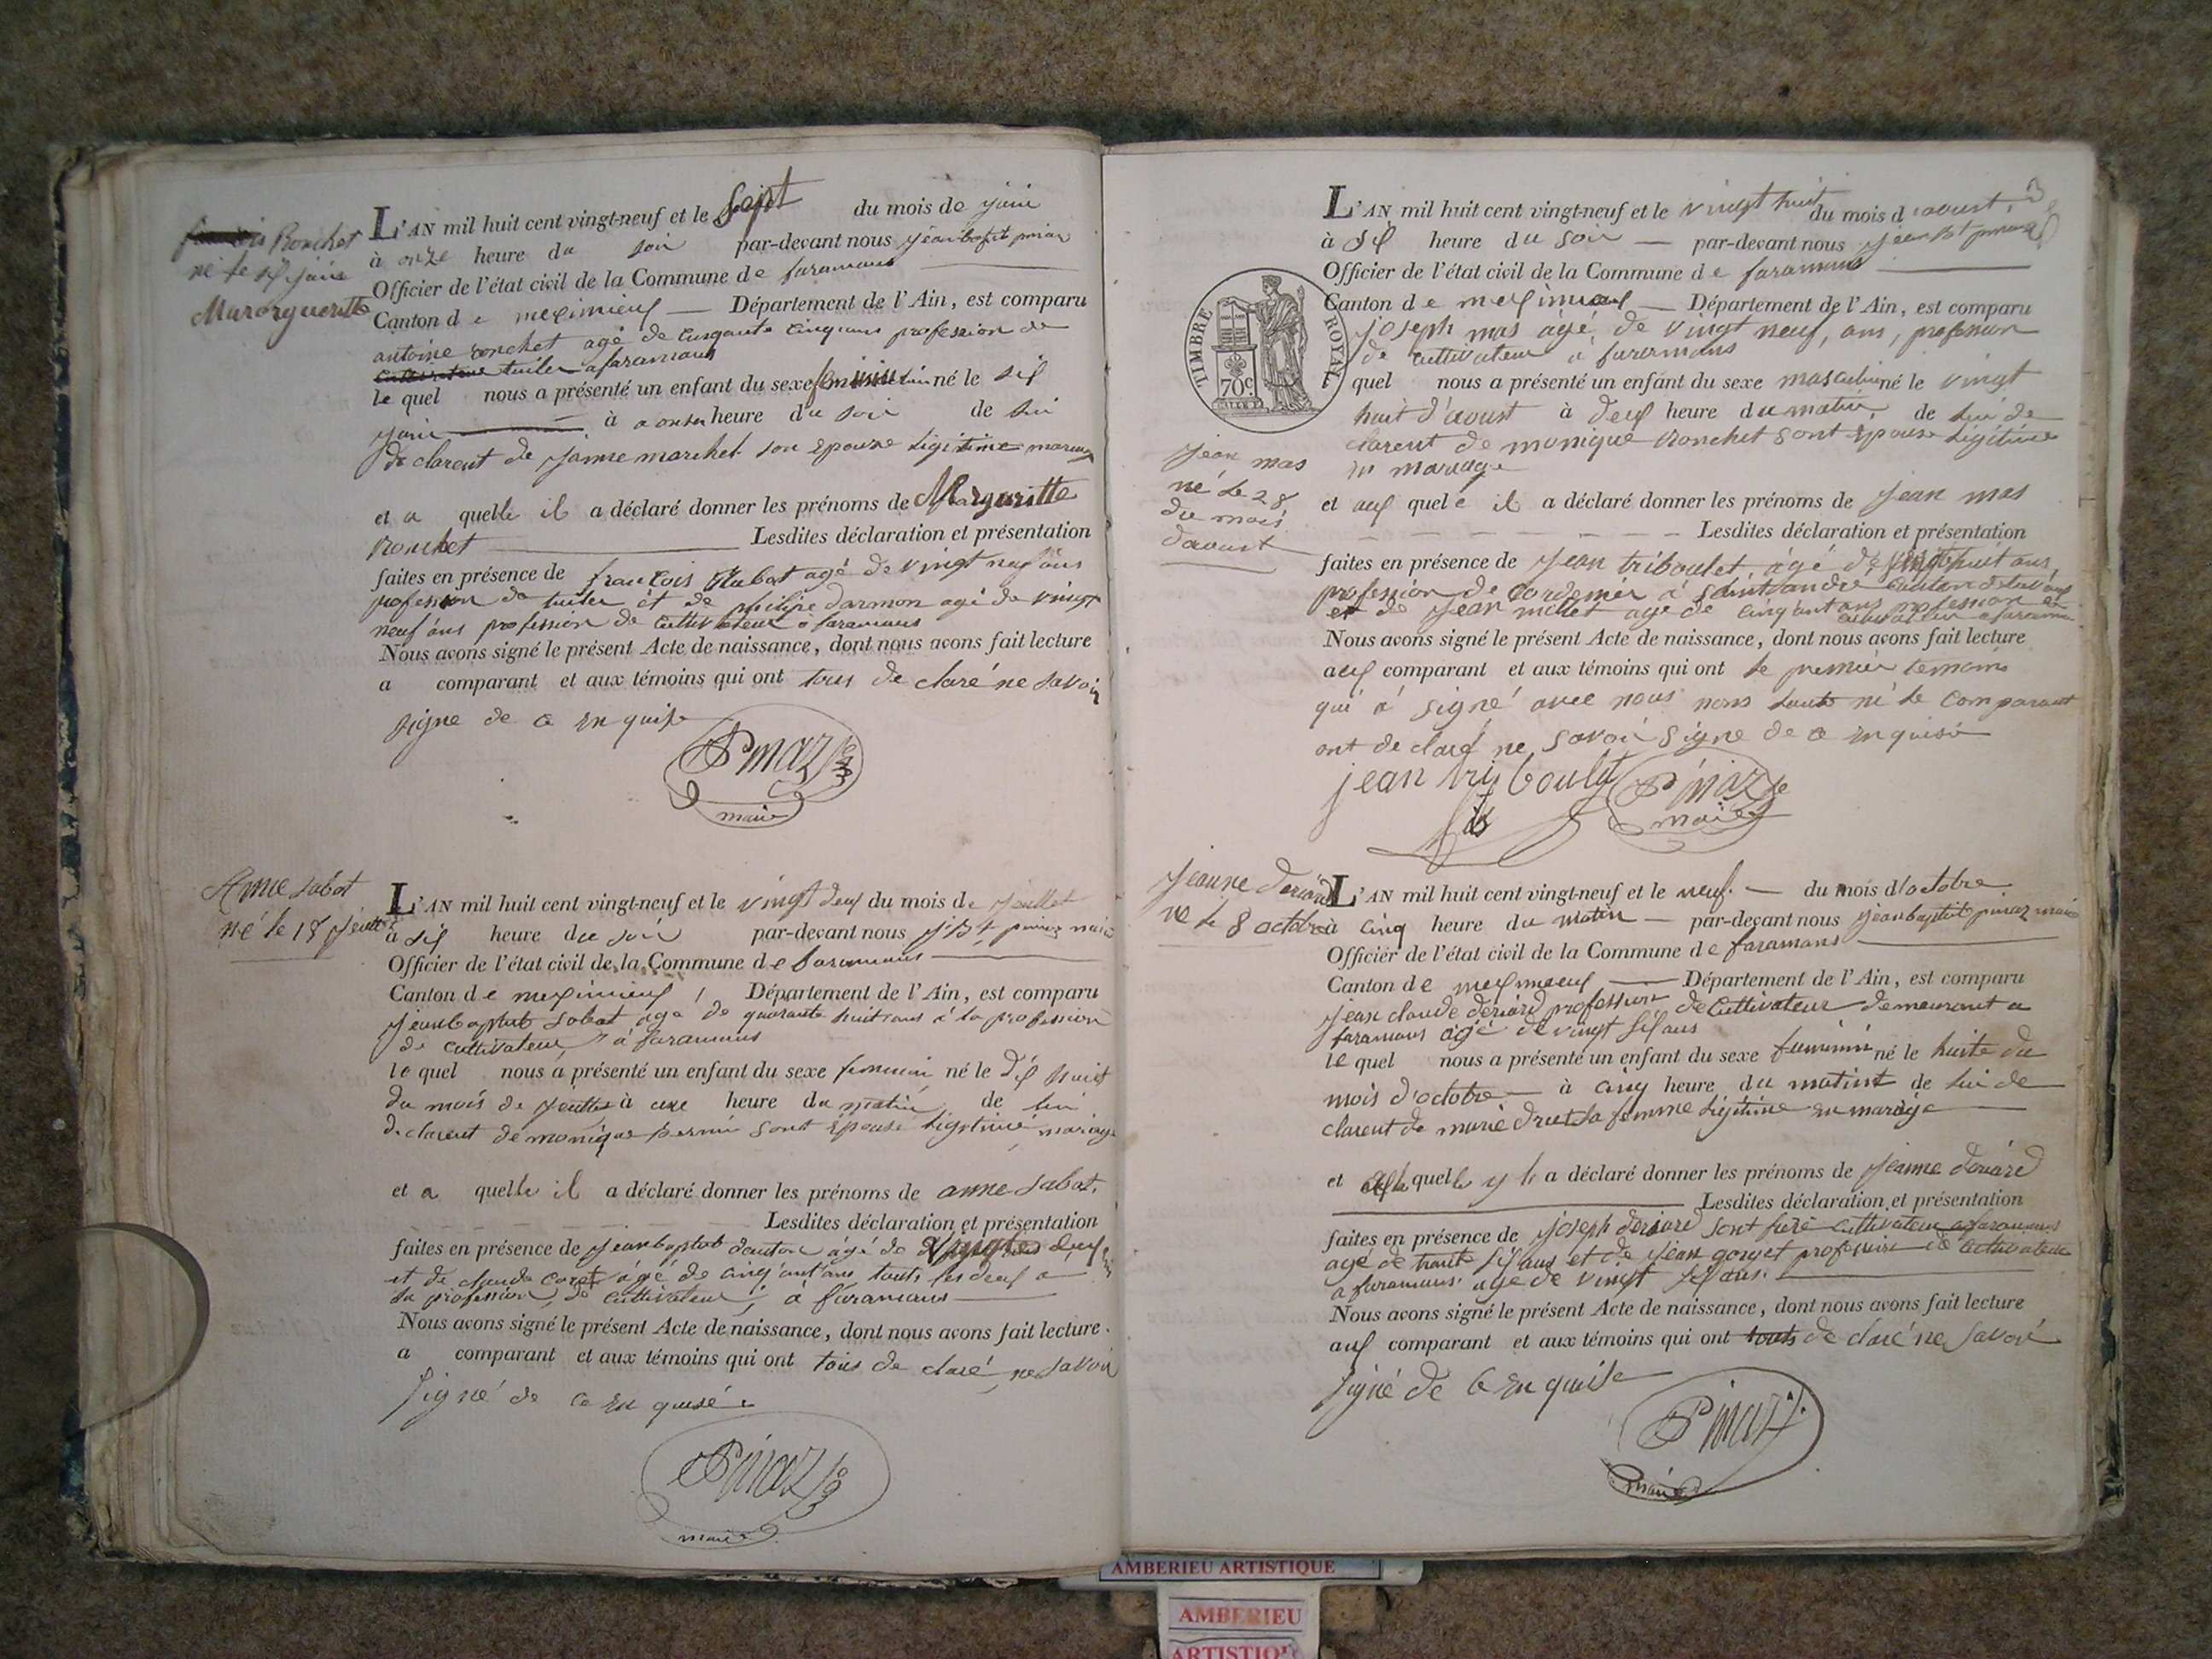 Ronchet
né le six juin
Marorgueritte
L'AN mil huit cent vingt-neuf et le Sept du mois de juin
à onze heure du soir par-devant nous jean bapt pinaz
Officier de l'état civil de la Commune de faramans
Canton de meximieux Département de l'Ain, est comparu
antoine ronchet agé de cinqante cinq ans profession de
cultivateur tuiler a faramans
le quel nous a présenté un enfant du sexe né le six
juin à heure du soir de lui
de clarent de janne marchet son epouse légitime
et a quelle il a déclaré donner les prénoms de Margueritte
Ronchet Lesdites déclaration et présentation
faites en présence de françois agé de vingt neuf ans
profession de tuiler et de philipe darmon agé de vingt
neuf ans profession de cultivateur a faramans
Nous avons signé le présent Acte de naissance, dont nous avons fait lecture
a comparant et aux témoins qui ont tous de claré ne savoir
signe de ce en quise
Pinaz
maire
Anne sabot
né le 18 jeuillet
L'AN mil huit cent vingt-neuf et le vingt deux du mois de jeuillet
à six heure du soir par-devant nous j. Bt pinaz maire
Officier de l'état civil de la Commune de faramans
Canton de meximieux Département de l'Ain, est comparu
jeanbaptist sabot age de quarante huit ans à la profession
de cultivateur à faramans
le quel nous a présenté un enfant du sexe feminin né le dix huit
du mois de jeuillet à une heure du matin de lui
de clarent de monique perrin sont épouse légitime mariage
et a quelle il a déclaré donner les prénoms de anne sabot.
Lesdites déclaration et présentation
faites en présence de jeanbaptist âgé de
et de claude âgé de cinq'ant ans touts les deux a
la profession, de cultivateur, a faramans
Nous avons signé le présent Acte de naissance, dont nous avons fait lecture.
a comparant et aux témoins qui ont tous de claré ne savoir
signé de ce en quisé
Pinaz
maire
L'AN mil huit cent vingt-neuf et le vingt huit du mois d'aoust,
à six heure du soir par-devant nous jean bat pinaz
Officier de l'état civil de la Commune de faramans
Canton de meximieux Département de l'Ain, est comparu
TIMBRE ROYAL
70c.
joseph mas âgé de vingt neuf, ans, profession
de cultivateur à faramans
quel nous a présenté un enfant du sexe masculin né le vingt
huit d'aoust à deux heure du matin, de lui de
clarent de monique ronchet sont épouse légitime
en mariage
jean mas
né le 28
du mois
d'aoust
et aux quel é il a déclaré donner les prénoms de jean mas
Lesdites déclaration et présentation
faites en présence de jean triboulet, âgé de huit ans,
profession de cordonnier à saint andré canton
et de jean millet age de cinq'ant ans profession de
cultivateur a faramans
Nous avons signé le présent Acte de naissance, dont nous avons fait lecture
aux comparant et aux témoins qui ont le premier temoins
qui a signé avec nous nons lautre ni le comparant
ont de claré ne savoir signe de ce en quise
jean triboulet
Pinaz
maire
Jeanne deriard
né le 8 octobre
L'AN mil huit cent vingt-neuf et le neuf. du mois d'octobre
à cinq heure du matin par-devant nous jeanbaptist pinaz maire
Officier de l'état civil de la Commune de faramans
Canton de meximeux Département de l'Ain, est comparu
jean claude deriard profession de cultivateur demeurant a
faramans agé de vingt six ans
le quel nous a présenté un enfant du sexe feminin né le huite du
mois d'octobre à cinq heure du matint de lui de
clarent de marie druet sa femme légitime en mariage
et quelle y l a déclaré donner les prénoms de jeanne deriard
Lesdites déclaration et présentation
faites en présence de joseph deriard sont frere cultivateur a faramans
agé de trante six ans et de jean gorget profession de cultivateur
a faramans age de vingt six ans.
Nous avons signé le présent Acte de naissance, dont nous avons fait lecture
aux comparant et aux témoins qui ont touts de claré ne savoir
signé de ce en quise
Pinaz
maire
AMBERIEU ARTISTIQUE
AMBERIEU